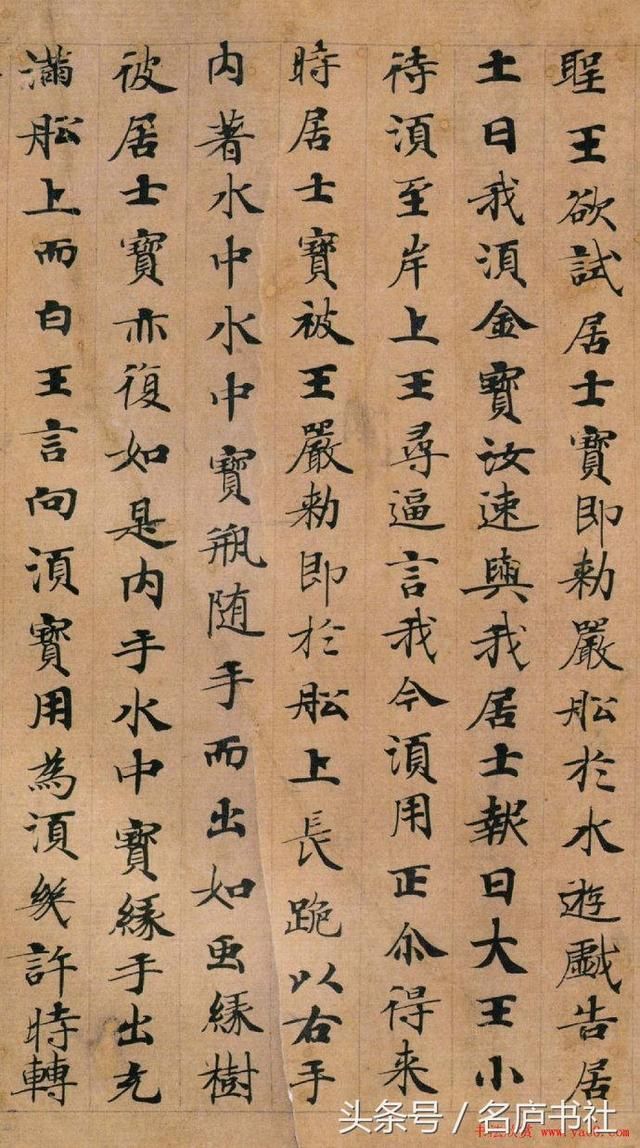 聖王欲試居士寶即勑嚴舩於水遊戲告居
士曰我湏金寶汝速與我居士報曰大王小
待湏至岸上王尋逼言我今湏用正尒得来
時居士寶被王嚴勑即於舩上長跪以右手
内著水中水中寶瓶随手而出如虫緣樹
彼居士寶亦復如是内手水中寶緣手出充
滿舩上而白王言向湏寶用為湏幾許時轉
头条号／名庐书社
书法欣赏 www.yac8.com